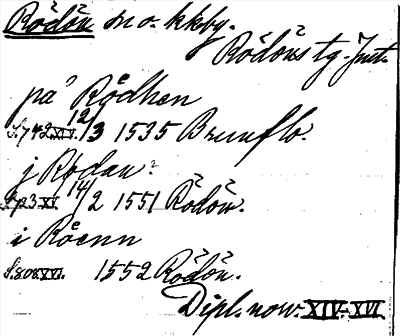 Rödön sn o. kkby.
Rödöns tg. Jmt.
på Rødhen
S.742 XIV. 12/3 1535 Brunflo.
j Rødan
S.723 XI. 14/2 1551 Rödön.
i Röenn
S.808 XVI. 1552 Rödön.
Dipl. now. XIV-XVI.